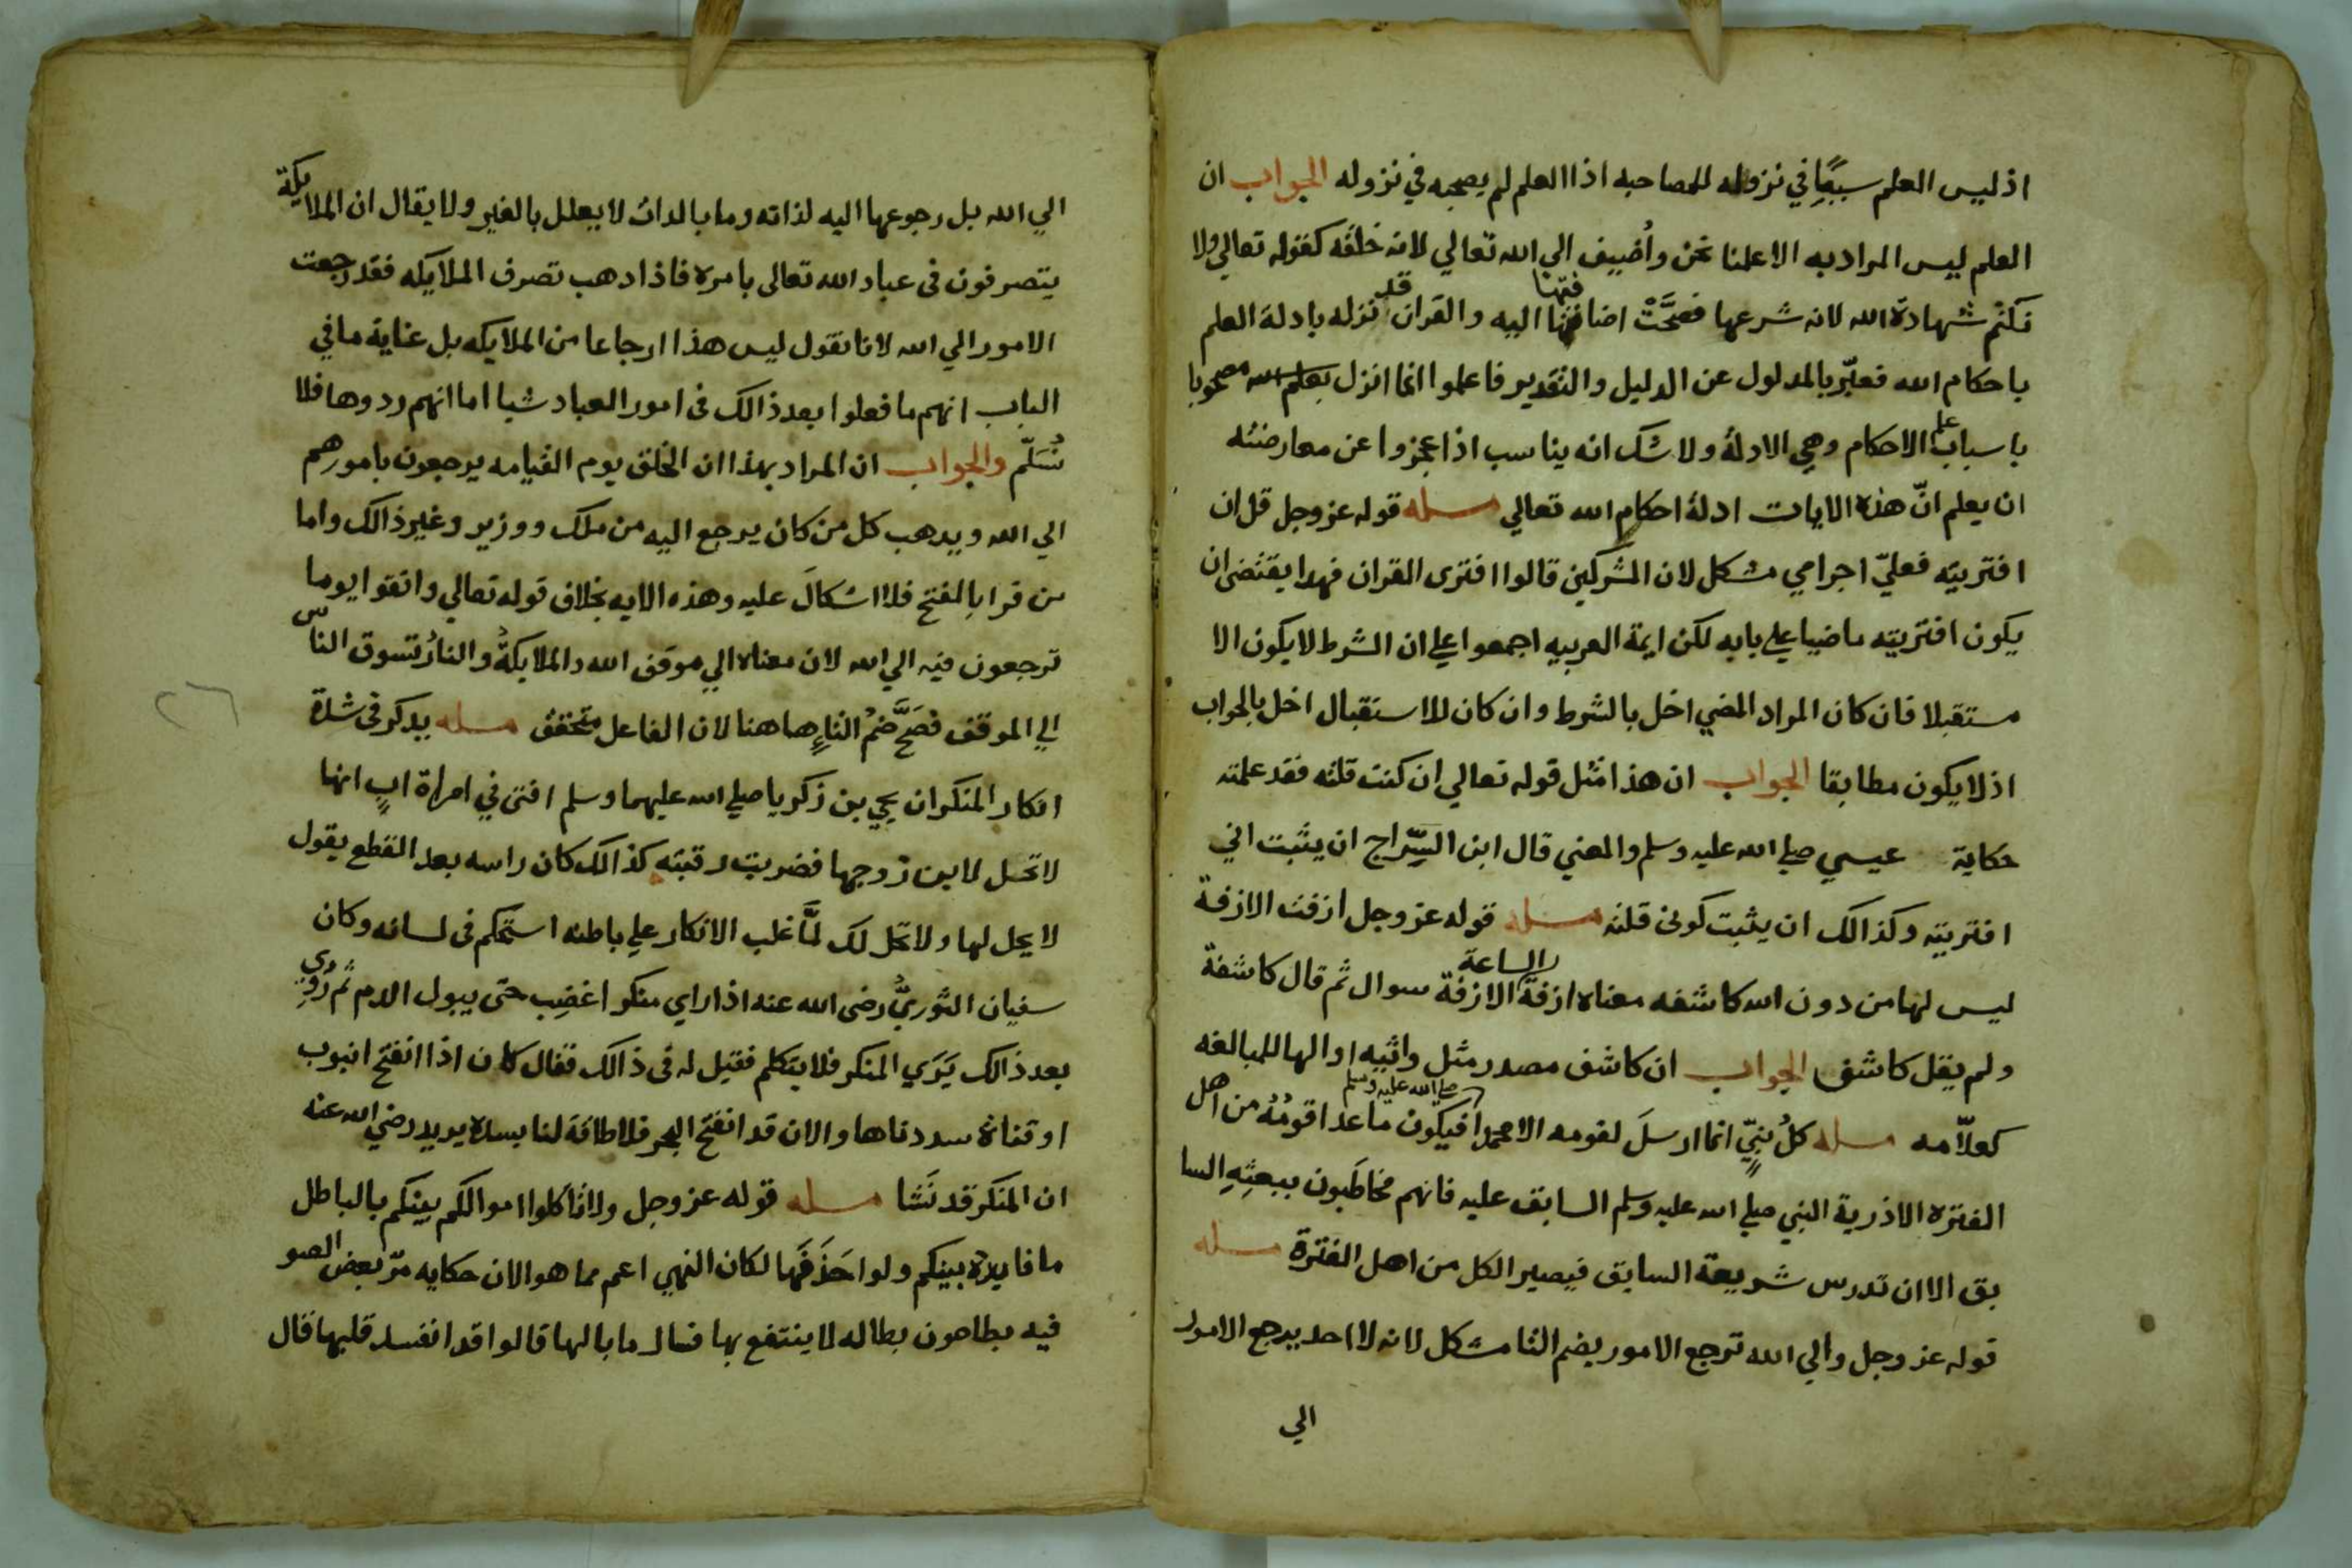 اذ ليس العلم سببًا في نزوله للمصاحبه اذ العلم لم يصحبه في نزوله الجواب ان
العلم ليس المراد به الا علمنا نحن وأُضيف الي الله تعالي لانه خلقه كقوله تعالي ولا
نكتم شهادة الله لانه شرعها فصحَّتْ اضافتها اليه والقران قد نزله بادلة العلم
باحكام الله فعبّر بالمدلول عن الدليل والتقدير فاعلموا انما انزل بعلم الله مصحوبا
باسباب علم الاحكام وهي الادلة ولا شك انه يناسب اذا عجزوا عن معارضته
ان يعلم انّ هذه الايات ادلة احكام الله تعالي مسله قوله عز وجل قل ان
افتريته فعليّ اجرامي مشكل لان المشركين قالوا افترى القران فهدا يقتضى ان
يكون افتريته ماضيا علي بابه لكن ايمة العربيه اجمعوا علي ان الشرط لا يكون الا
مستقبلا فان كان المراد المضي اخل بالشرط وان كان للاستقبال اخل بالجواب
اذ لا يكون مطابقا الجواب ان هذا مثل قوله تعالي ان كنت قلته فقد علمته
حكاية عيسي صلي الله عليه وسلم والمعني قال ابن السِّراج ان يثبت اني
افتريته وكذالك ان يثبت كونى قلته مسله قوله عز وجل ازفت الازفة
ليس لها من دون الله كاشفه معناه ازفة الساعة الازفة سوال ثم قال كاشفة
ولم يقل كاشف الجواب ان كاشف مصدر مثل واثيه او الها للمبالغه
كعلاّمه مسله كلُ نبيّ انما ارسلَ لقومه الا محمدا صلي الله عليه وسلم فيكون ما عدا قومُهُ من اهل
الفتره الا ذرية النبي صلي الله عليه وسلم السابق عليه فانهم مخاطَبون ببعثِهِ السا
بق الا ان تدرس شريعة السابق فيصير الكل من اهل الفترة مسله
قوله عز وجل والي الله ترجع الامور بضم التا مشكل لانه لا احد يرجع الامور
الي
الي الله بل رجوعها اليه لذاته وما بالدات لا يعلل بالغير ولا يقال ان الملايكة
يتصرفون فى عباد الله تعالى بامره فاذا دهب تصرف الملايكه فقد رجعت
الامور الي الله لانا نقول ليس هذا ارجاعا من الملايكه بل غاية ما في
الباب انهم ما فعلوا بعد ذالك فى امور العباد شيا اما انهم ردوها فلا
نُسَلّم والجواب ان المراد بهذا ان الخلق يوم القيامه يرجعون بامورهم
الي الله ويدهب كل من كان يرجع اليه من ملك ووزير وغير ذالك واما
من قرا بالفتح فلا اشكالَ عليه وهذه الايه بخلاف قوله تعالي واتقوا يوما
ترجعون فيه الي الله لان معناه الي موقف الله والملايكةُ والنارُ تسوق الناس
الي الموقف فصَحَّ ضمُ التاءِ هاهنا لان الفاعل متحقق مسله يدكر فى شدة
انكار المنكر ان يحيي بن زكريا صلي الله عليهما وسلم افتى في امراة ابٍ انها
لا تحل لابن زوجها فضربت رقبته كذالك كان راسه بعد القطع يقول
لا يحل لها ولا تحل لك لمَّا غلب الانكار علي باطنه استحكم فى لسانه وكان
سفيان الثوريُّ رضى الله عنه اذا راي منكرا غضِب حتى يبول الدم ثم رُوِي
بعد ذالك يَرَي المنكر فلا يتكلم فقيل له فى ذالك فقال كان اذا انفتح انبوب
او قناة سددناها والان قد انفتح البحر فلا طاقة لنا بسده يريد رضي الله عنه
ان المنكر قد نَشَا مسله قوله عز وجل ولا تاكلوا اموالكم بينكم بالباطل
ما فايدة بينكم ولو احَذَفَها لكان النهي اعم مما هو الان حكايه مرّ بعض الصو
فيه بطاحون بطاله لا ينتفع بها فسال ما بالها قالوا قد انفسد قلبها قال